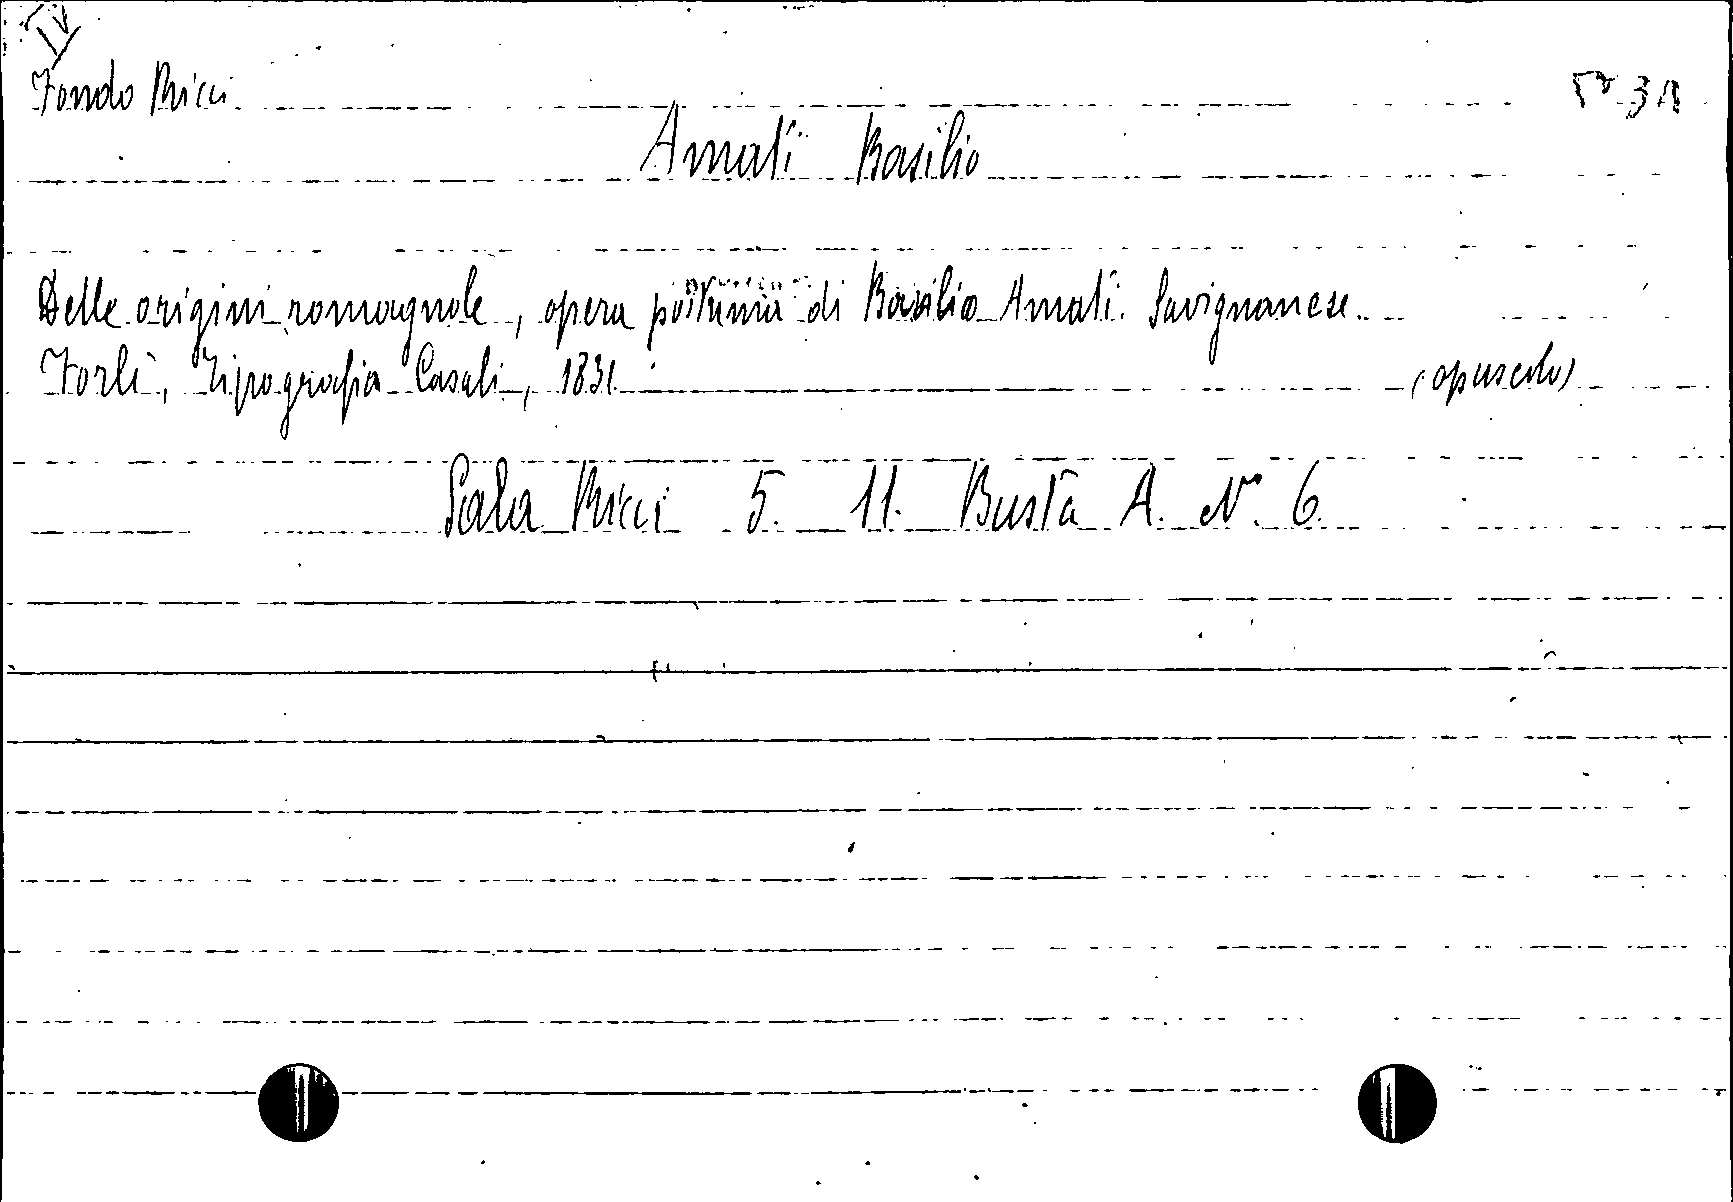 Fondo Ricci
Amati Basilio
Delle origini romagnole, opera postuma di Basilio Amati. Savignanese.
Forlì, Tipografia Casali, 1831 (opuscolo)
Sala Ricci 5. 11. Busta A. N. 6